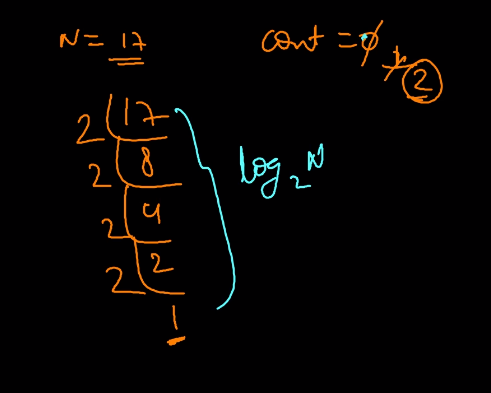 N = 17
cont = 0 1 2
2 17
2 8
2 4
2 2
1
log₂N